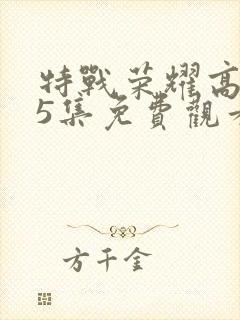 特戰榮耀高
5集免費觀看
方千金